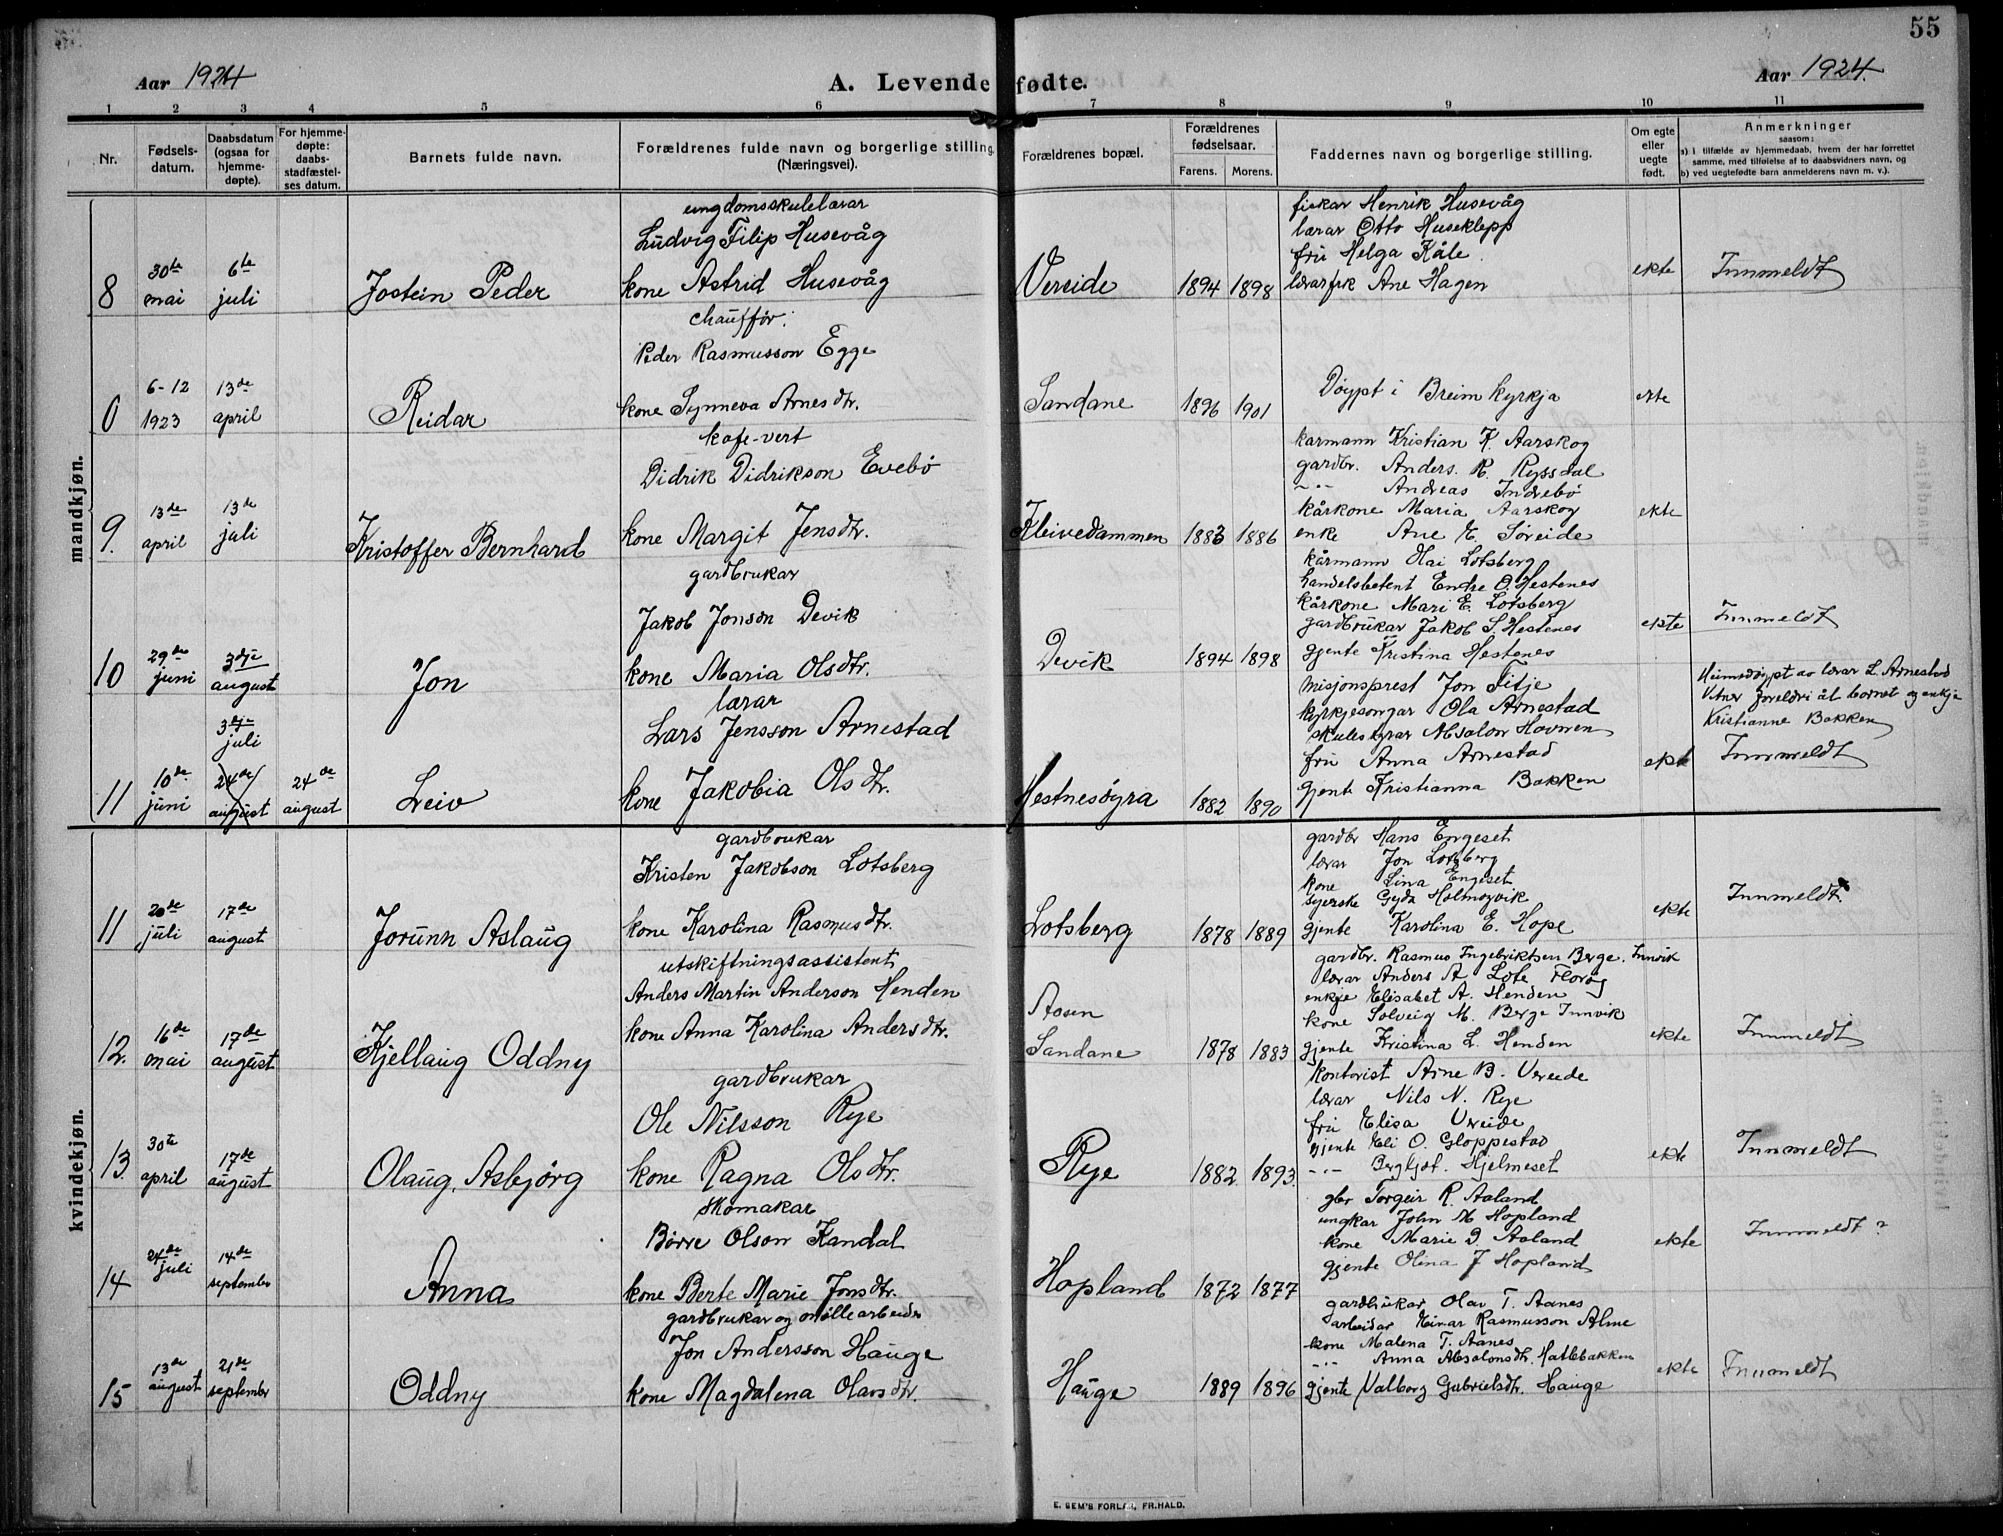 55
Aar 1924
A. Levende fødte.
Aar 1924.
1 2 3 4 5 6 7 8 9 10 11
Nr.
Fødsels-
datum.
Daabsdatum
(ogsaa for
hjemme-
døpte).
For hjemme-
døpte:
daabs-
stadfæstel-
ses datum.
Barnets fulde navn.
Forældrenes fulde navn og borgerlige stilling.
(Næringsvei).
Forældrenes bopæl.
Forældrenes
fødselsaar.
Farens. Morens.
Faddernes navn og borgerlige stilling.
Om egte
eller
uegte
født.
Anmerkninger
saasom:
a) i tilfælde av hjemmedaab, hvem der har forrettet
samme, med tilføielse af to daabsvidners navn, og
b) ved uegtefødte barn anmelderens navn m. v.).
mandkjøn.
8
30te
mai
6te
juli
Jostein Peder
ungdomsskulelærar
Ludvig Filip Husevåg
kone Astrid Husevåg
Vereide
1894 1898
fiskar Henrik Husevåg
lærar Otto Huseklepp
fru Helga Kåle
lærarfrk Ane Hagen
ekte
Innmeldt
0
6-12
1923
13de
april
Reidar
chauffør.
Peder Rasmusson Egge
kone Synneva Arnesdtr.
Sandane
1896 1901
Døypt i Breim kyrkja
ekte
9.
13de
april
13de
juli
Kristoffer Bernhard
kafe-vert
Didrik Didrikson Evebø
kone Margit Jensdtr.
Kleivedammen
1883 1886
karmann Kristian K. Aarskog
gardbr. Anders. R. Ryssdal
-"- Andreas Indrebø
kårkone Maria Aarskog
enke Ane E. Søreide
ekte
10
29de
juni
3dje
august
Jon
gardbrukar
Jakob Jonson Devik
kone Maria Olsdtr.
Devik
1894 1898
kårmann Olai Lotsberg
handelsbetent Endre O. Hestenes
kårkone Mari E. Lotsberg
gardbrukar Jakob S. Hestenes
gjente Kristina Hestenes
ekte
Innmeldt
11
10de
juni
3dje
juli
24de
august
24de
august
Leiv
lærar
Lars Jensson Arnestad
kone Jakobia Olsdtr.
Hestnesøyra
1882 1890
misjonsprest Jon Fitje
kyrkjesongar Ola Arnestad
skulestyrar Absalon Hovnen
fru Anna Arnestad
gjente Kristianna Bakken
ekte
Heimedøypt av lærar L. Arnestad
Vitner foreldri åt bornet og enkja
Kristianne Bakken
Innmeldt
kvindekjøn.
11
20de
juli
17de
august
Jorunn Aslaug
gardbrukar
Kristen Jakobson Lotsberg
kone Karolina Rasmusdtr.
Lotsberg
1878 1889
gardbr Hans Engeset
lærar Jon Lotsberg
kone Lina Engeset
syerske Gyda Holmøyvik
gjente Karolina E. Hope
ekte
Innmeldt
12.
16de
mai
17de
august
Kjellaug Oddny
utskiftningsassistent
Anders Martin Anderson Henden
kone Anna Karolina Andersdtr.
Aasen
Sandane
1878 1883
gardbr. Rasmus Ingebriktsen Berge. Innvik
lærar Anders A Lote Florøy
enkje Elisabet A. Henden
kone Solveig M. Berge Innvik
gjente Kristina L. Henden
ekte
Innmeldt
13.
30te
april
17de
august
Olaug, Asbjørg
gardbrukar
Ole Nilsson Rye
kone Ragna Olsdtr.
Rye
1882 1893
kontorist Arne B. Vereide
lærar Nils N. Rye
fru Elisa Vereide
gjente Eli O. Gloppestad
-"- Bergljot. Hjelmeset
ekte
Innmeldt
14
24de
juli
14de
september
Anna
skomakar
Børre Olson Kandal
kone Berte Marie Jonsdtr.
Hopland
1872 1877
gbr Torgeir R. Aaland
ungkar John M Hopland
kone Marie D. Aaland
gjente Olina J Hopland
ekte
Innmeldt?
15
13de
august
21de
september
Oddny
gardbrukar og møllearbeider
Jon Andersson Hauge
kone Magdalena Olavsdtr.
Hauge
1889 1896
gardbrukar Olav T. Aanes
arbeidar Einar Rasmusson Alme
kone Malena T. Aanes
-"- Anna Absalonsdtr. Hatlebakken
gjente Valborg Gabrielsdtr. Hauge
ekte
Innmeldt
E. SEM'S FORLAG, FR.HALD.